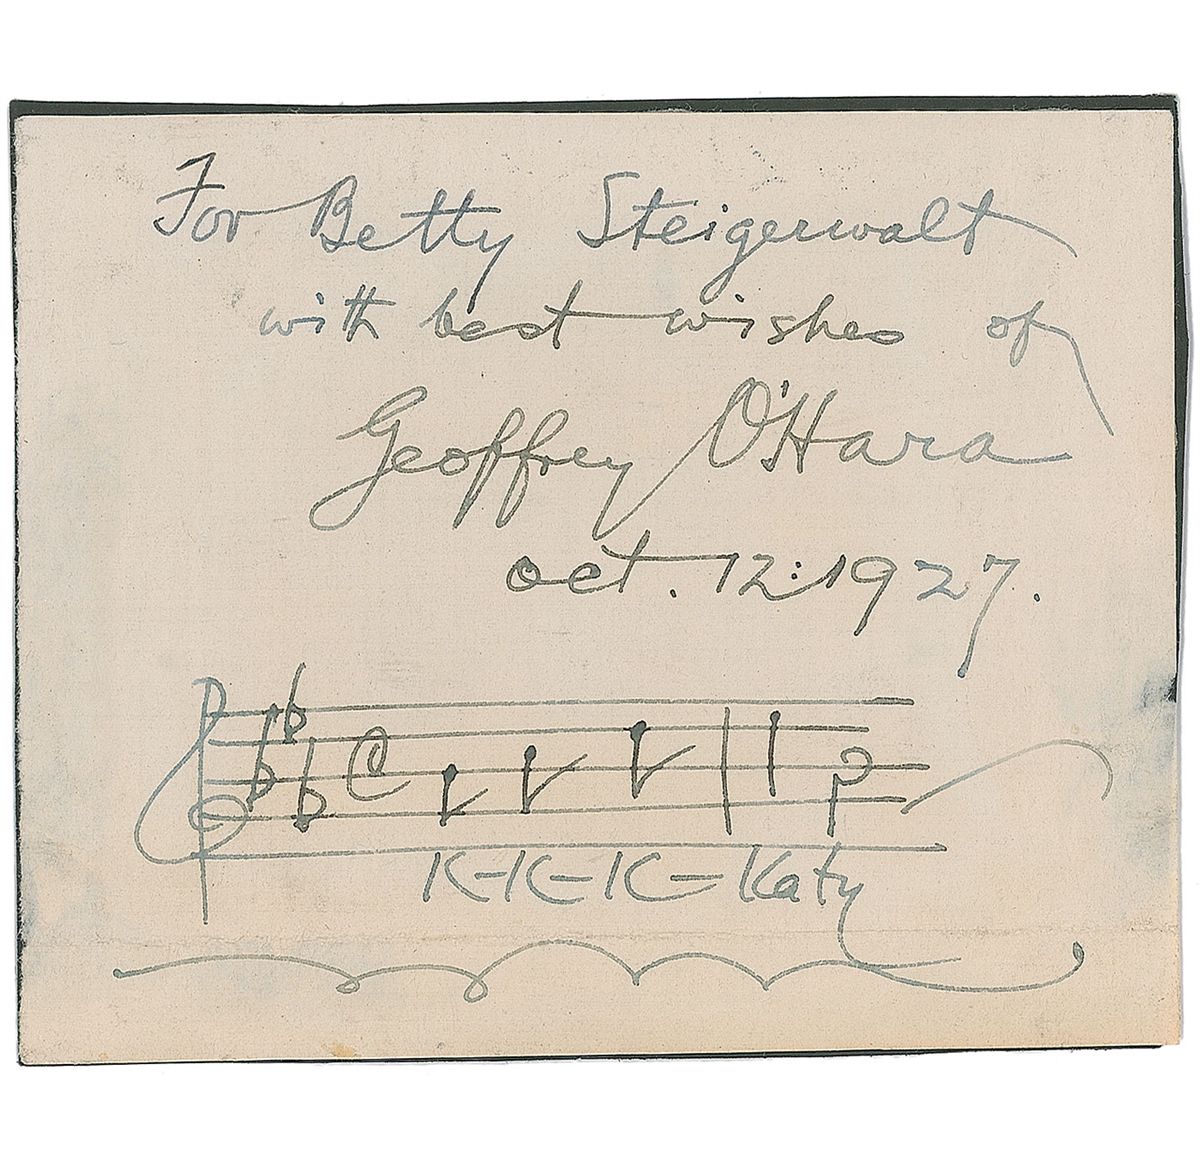 For Betty Steigerwalt
with best wishes of
Geoffrey O'Hara
oct. 12:1927.
K-K-K-Katy